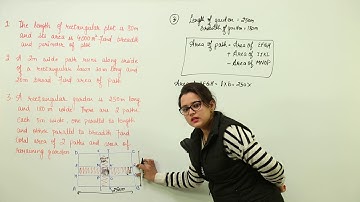 1 The length of rectangular plot is 80m
and its area is 4000m² Find breadth
and perimeter of plot
2. A 2m wide path runs along inside
of a rectangular
broad Find area of path
3 A rectangular garden is 250m long
and 180m wide There are 2 paths
each 5m wide, one parallel to length
and other parallel to breadth Find
total area of 2 paths and area of
remaining garden
③ Length of garden = 250m
Breadth of garden = 180m
Area of path = Area of EFGH
+ Area of IJKL
- Area of MNOP